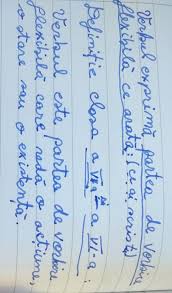 Verbul exprimă partea de vorbire
flexibilă ce arată: (ce ai scris tu)
Definiție clasa a VII-a a VI-a:
Verbul este partea de vorbire
flexibilă care redă o acțiune,
o stare sau o existență.